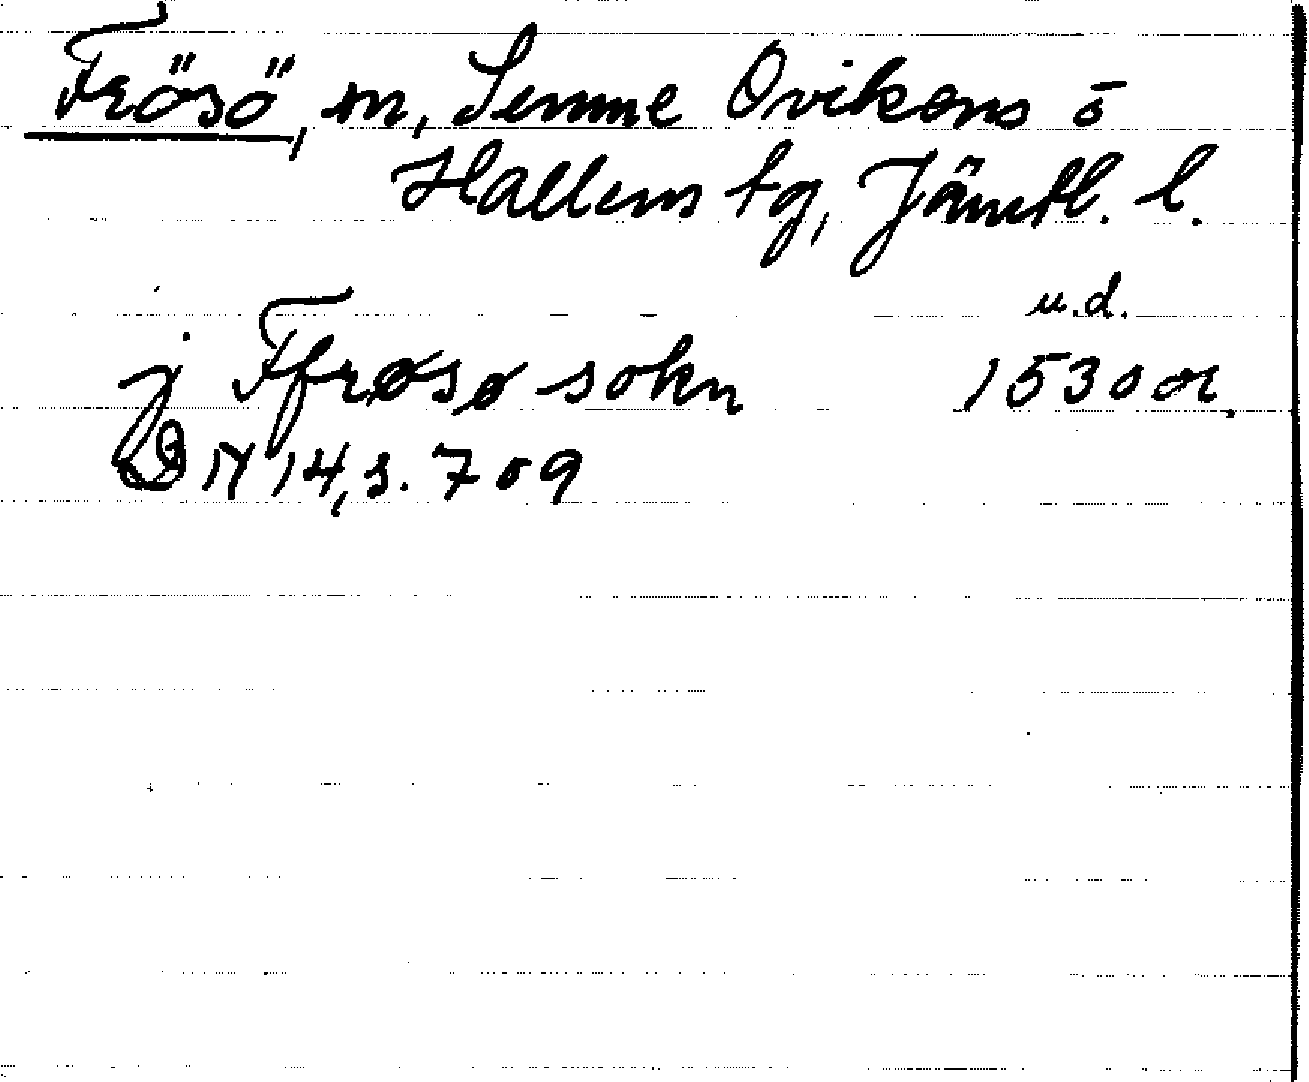 Frösö, sn, Sunne Ovikens o
Hallens tg, Jämtl. l.
u.d.
j Ffrøsø sokn 1530 or.
DN 14, s. 709